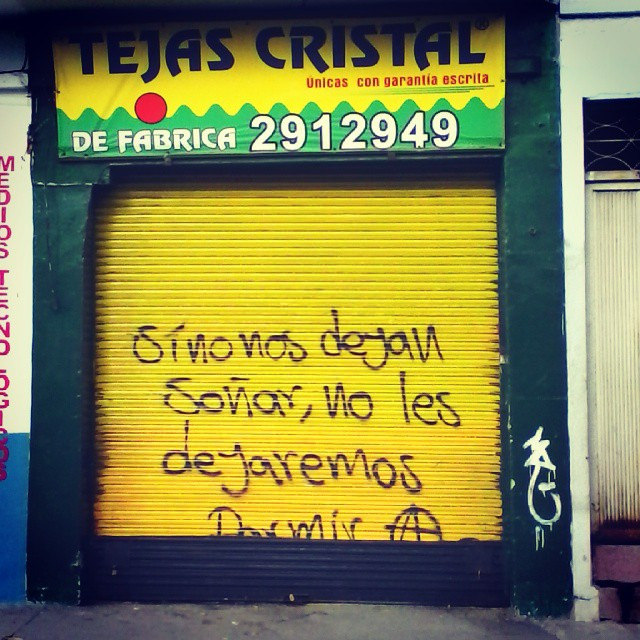 TEJAS CRISTAL®
Únicas con garantía escrita
DE FABRICA 2912949
MEDIOS TECNOLOGICOS
Sí no nos dejan
Soñar, no les
dejaremos
Dormir